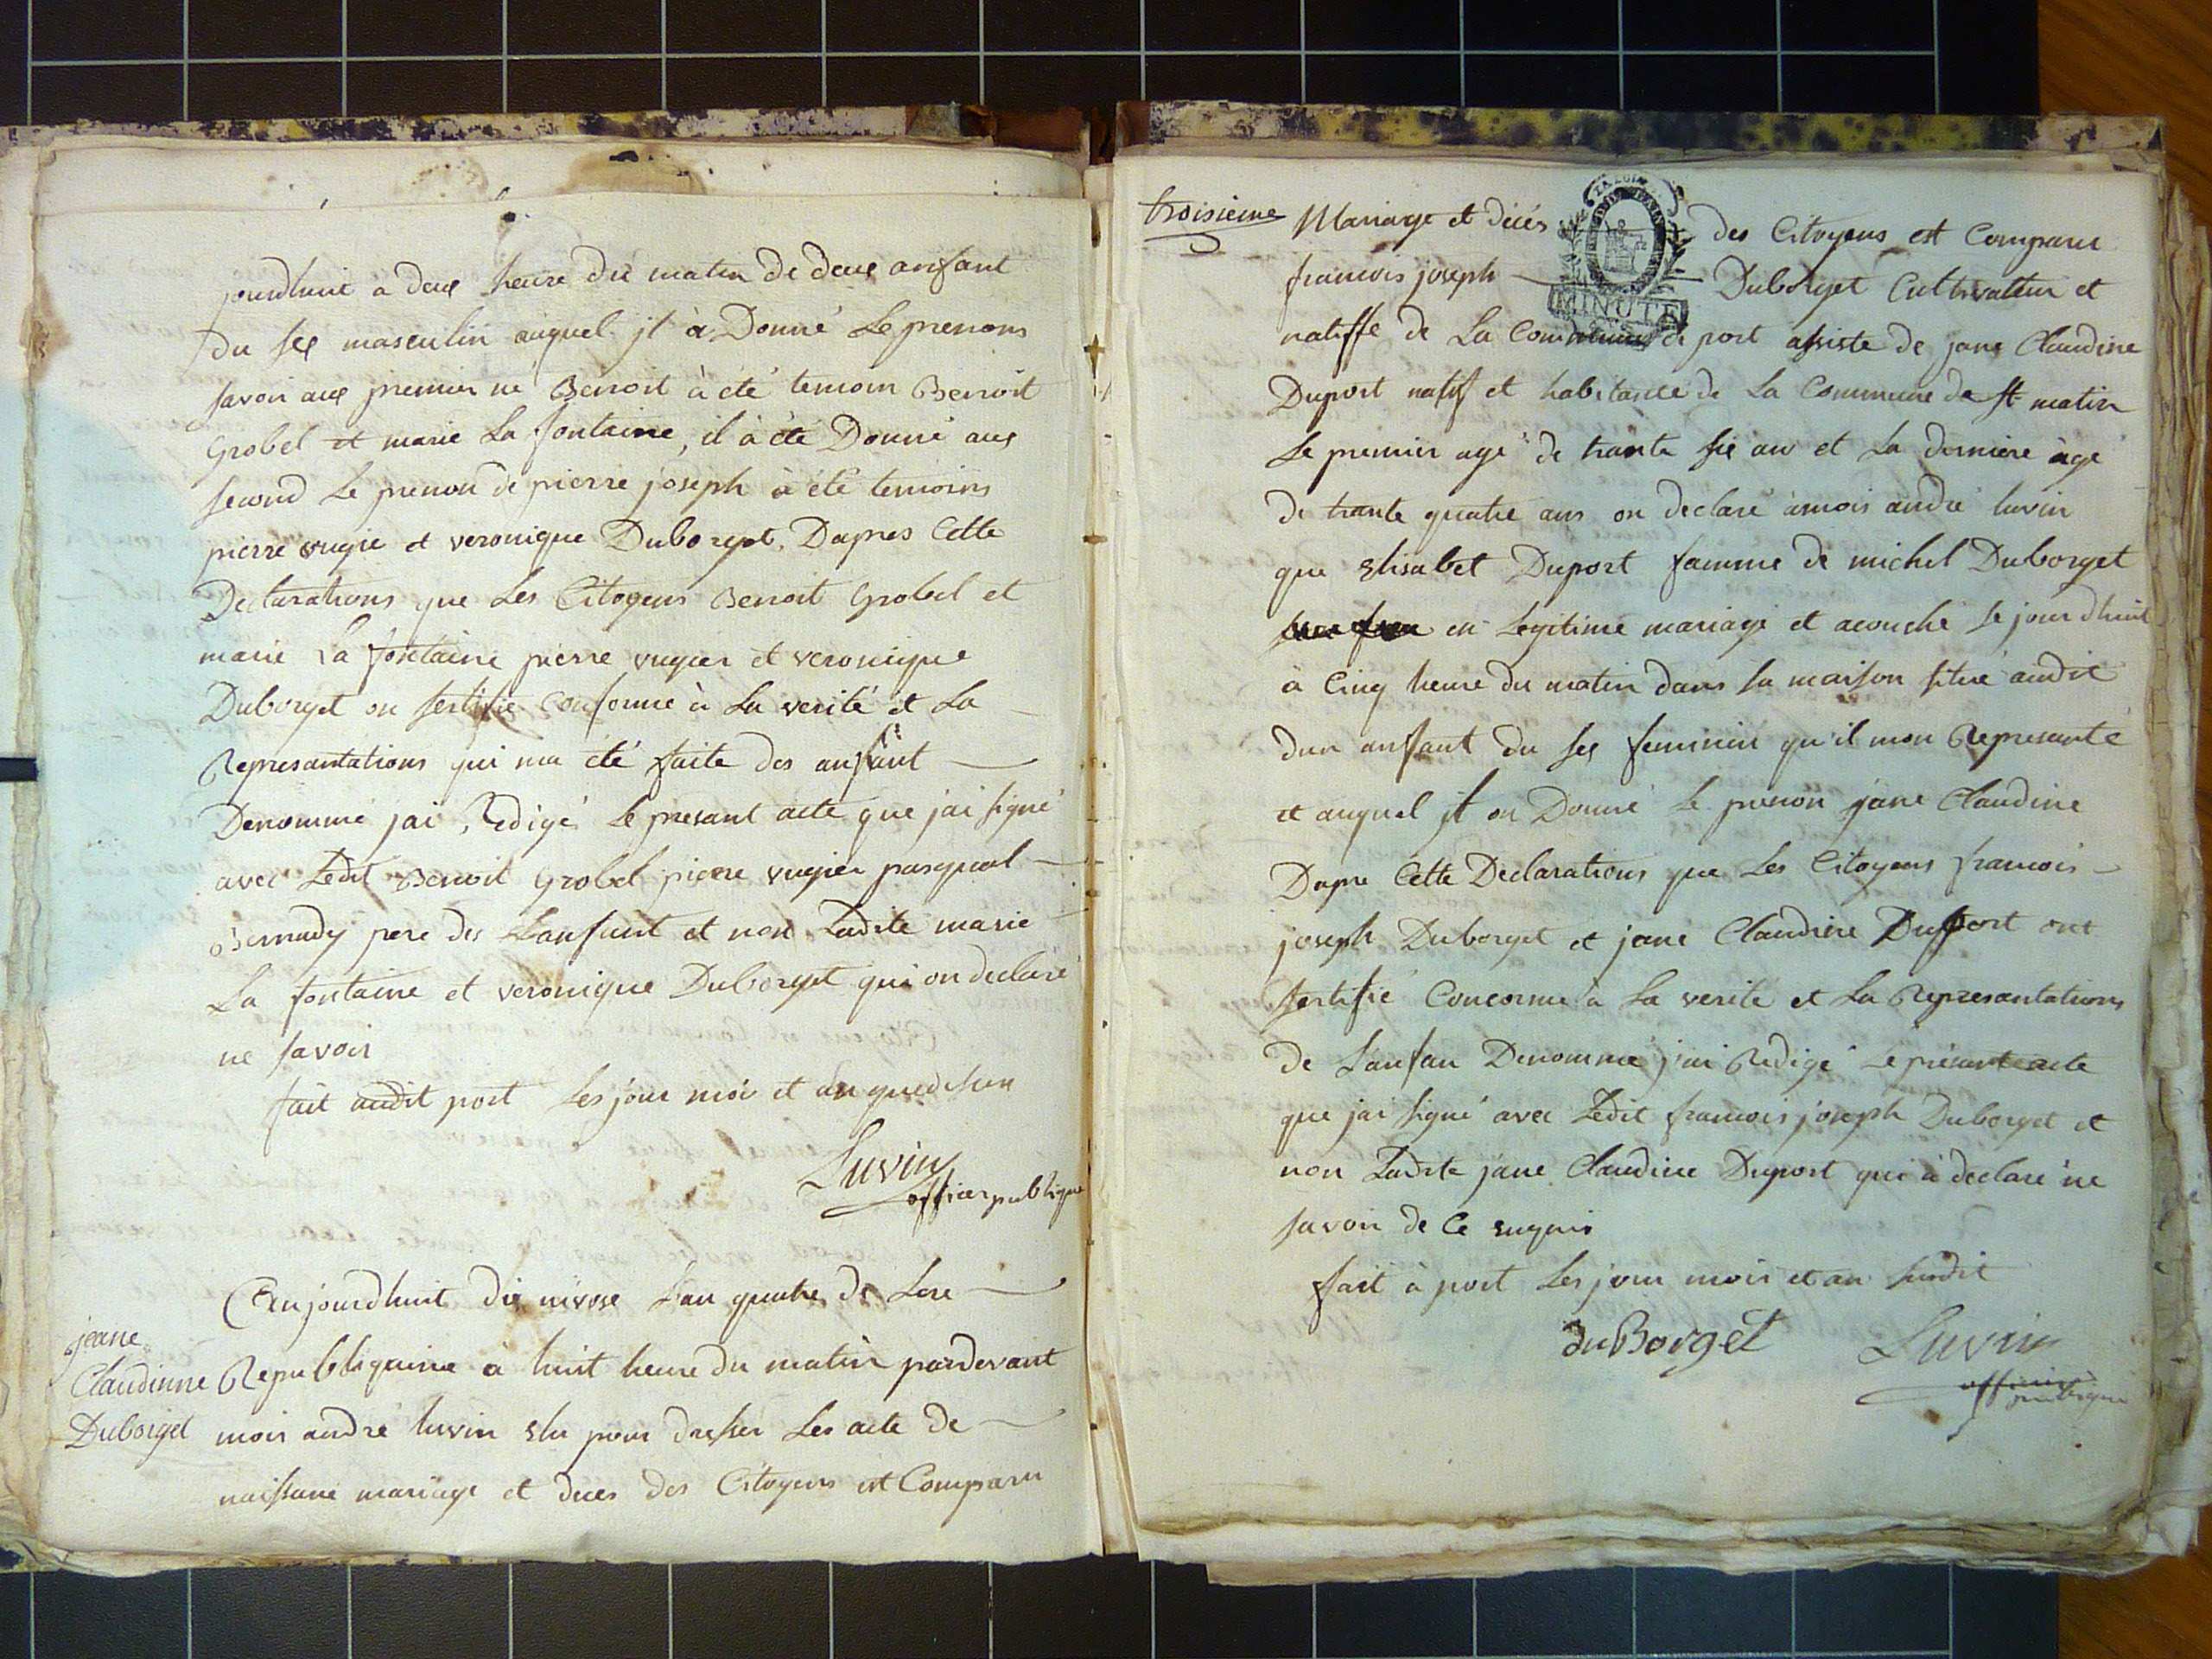 jourdhuit a deux heure du matin de deux anfant
du sex masculin auquel jl à Donné Le prenoms
savoir aux premier né Benoit à été temoin Benoit
Grobel et marie La fontaine, il à été Donné aux
second Le prenon de pierre joseph à été temoins
pierre vugie et veronique Duborget. Dapres Cette
Declarations que Les Citoyens Benoit Grobel et
marie La fontaine pierre vugier et veronique
Duborget on sertifie Conforme à La verité et La
Represantations qui ma été faite des anfant
Denommé jai Redigé Le presant acte que jai signé
avec Ledit Benoit Grobel pierre vugier pasqual
Bernady pere des Lanfant et non Ladite marie
La fontaine et veronique Duborget qui on declaré
ne savoir
fait audit port Les jour moi et an quedesur
Luvin
officier publique
Aujourdhuit dix nivose Lan quatre de Lere
jeane
Claudinne
Duborget
Republiquaine a huit heure du matin pardevant
moi andré luvin Elu pour dresser Les acte de
naissane mariage et deces des Citoyens est Comparu
troisieme
Mariage et décés des Citoyens est Comparu
francois joseph Duborget Cultivatteur et
MINUTE
natiffe de La Commune de port assiste de jane Claudine
Duport natif et habitante de La Commune de St matin
Le premier agé de trante six an et La derniere àgé
de trante quatre ans on declaré àmoi andré luvin
que Elisabet Duport famme de michel Duborget
en Legitime mariage et acouché Le jourdhuit
à Cinq heure du matin dans sa maison situé audit
dun anfant du sex feminin qu'il mon Represanté
et auquel jl on Donné Le prenon jane Claudine
Dapre Cette Declarations que Les Citoyens francois
joseph Duborget et jane Claudine Duport ont
sertifié Concorme à La verité et La Represantations
de Lanfan Denommé j'ai Redigé Le présant acte
que jai signé avec Ledit francois joseph Duborget et
non Ladite jane Claudine Duport qui à declaré ne
savoir de Ce enquis
fait à port Les jour mois et an susdit
duBorget
Luvin
officier
publique